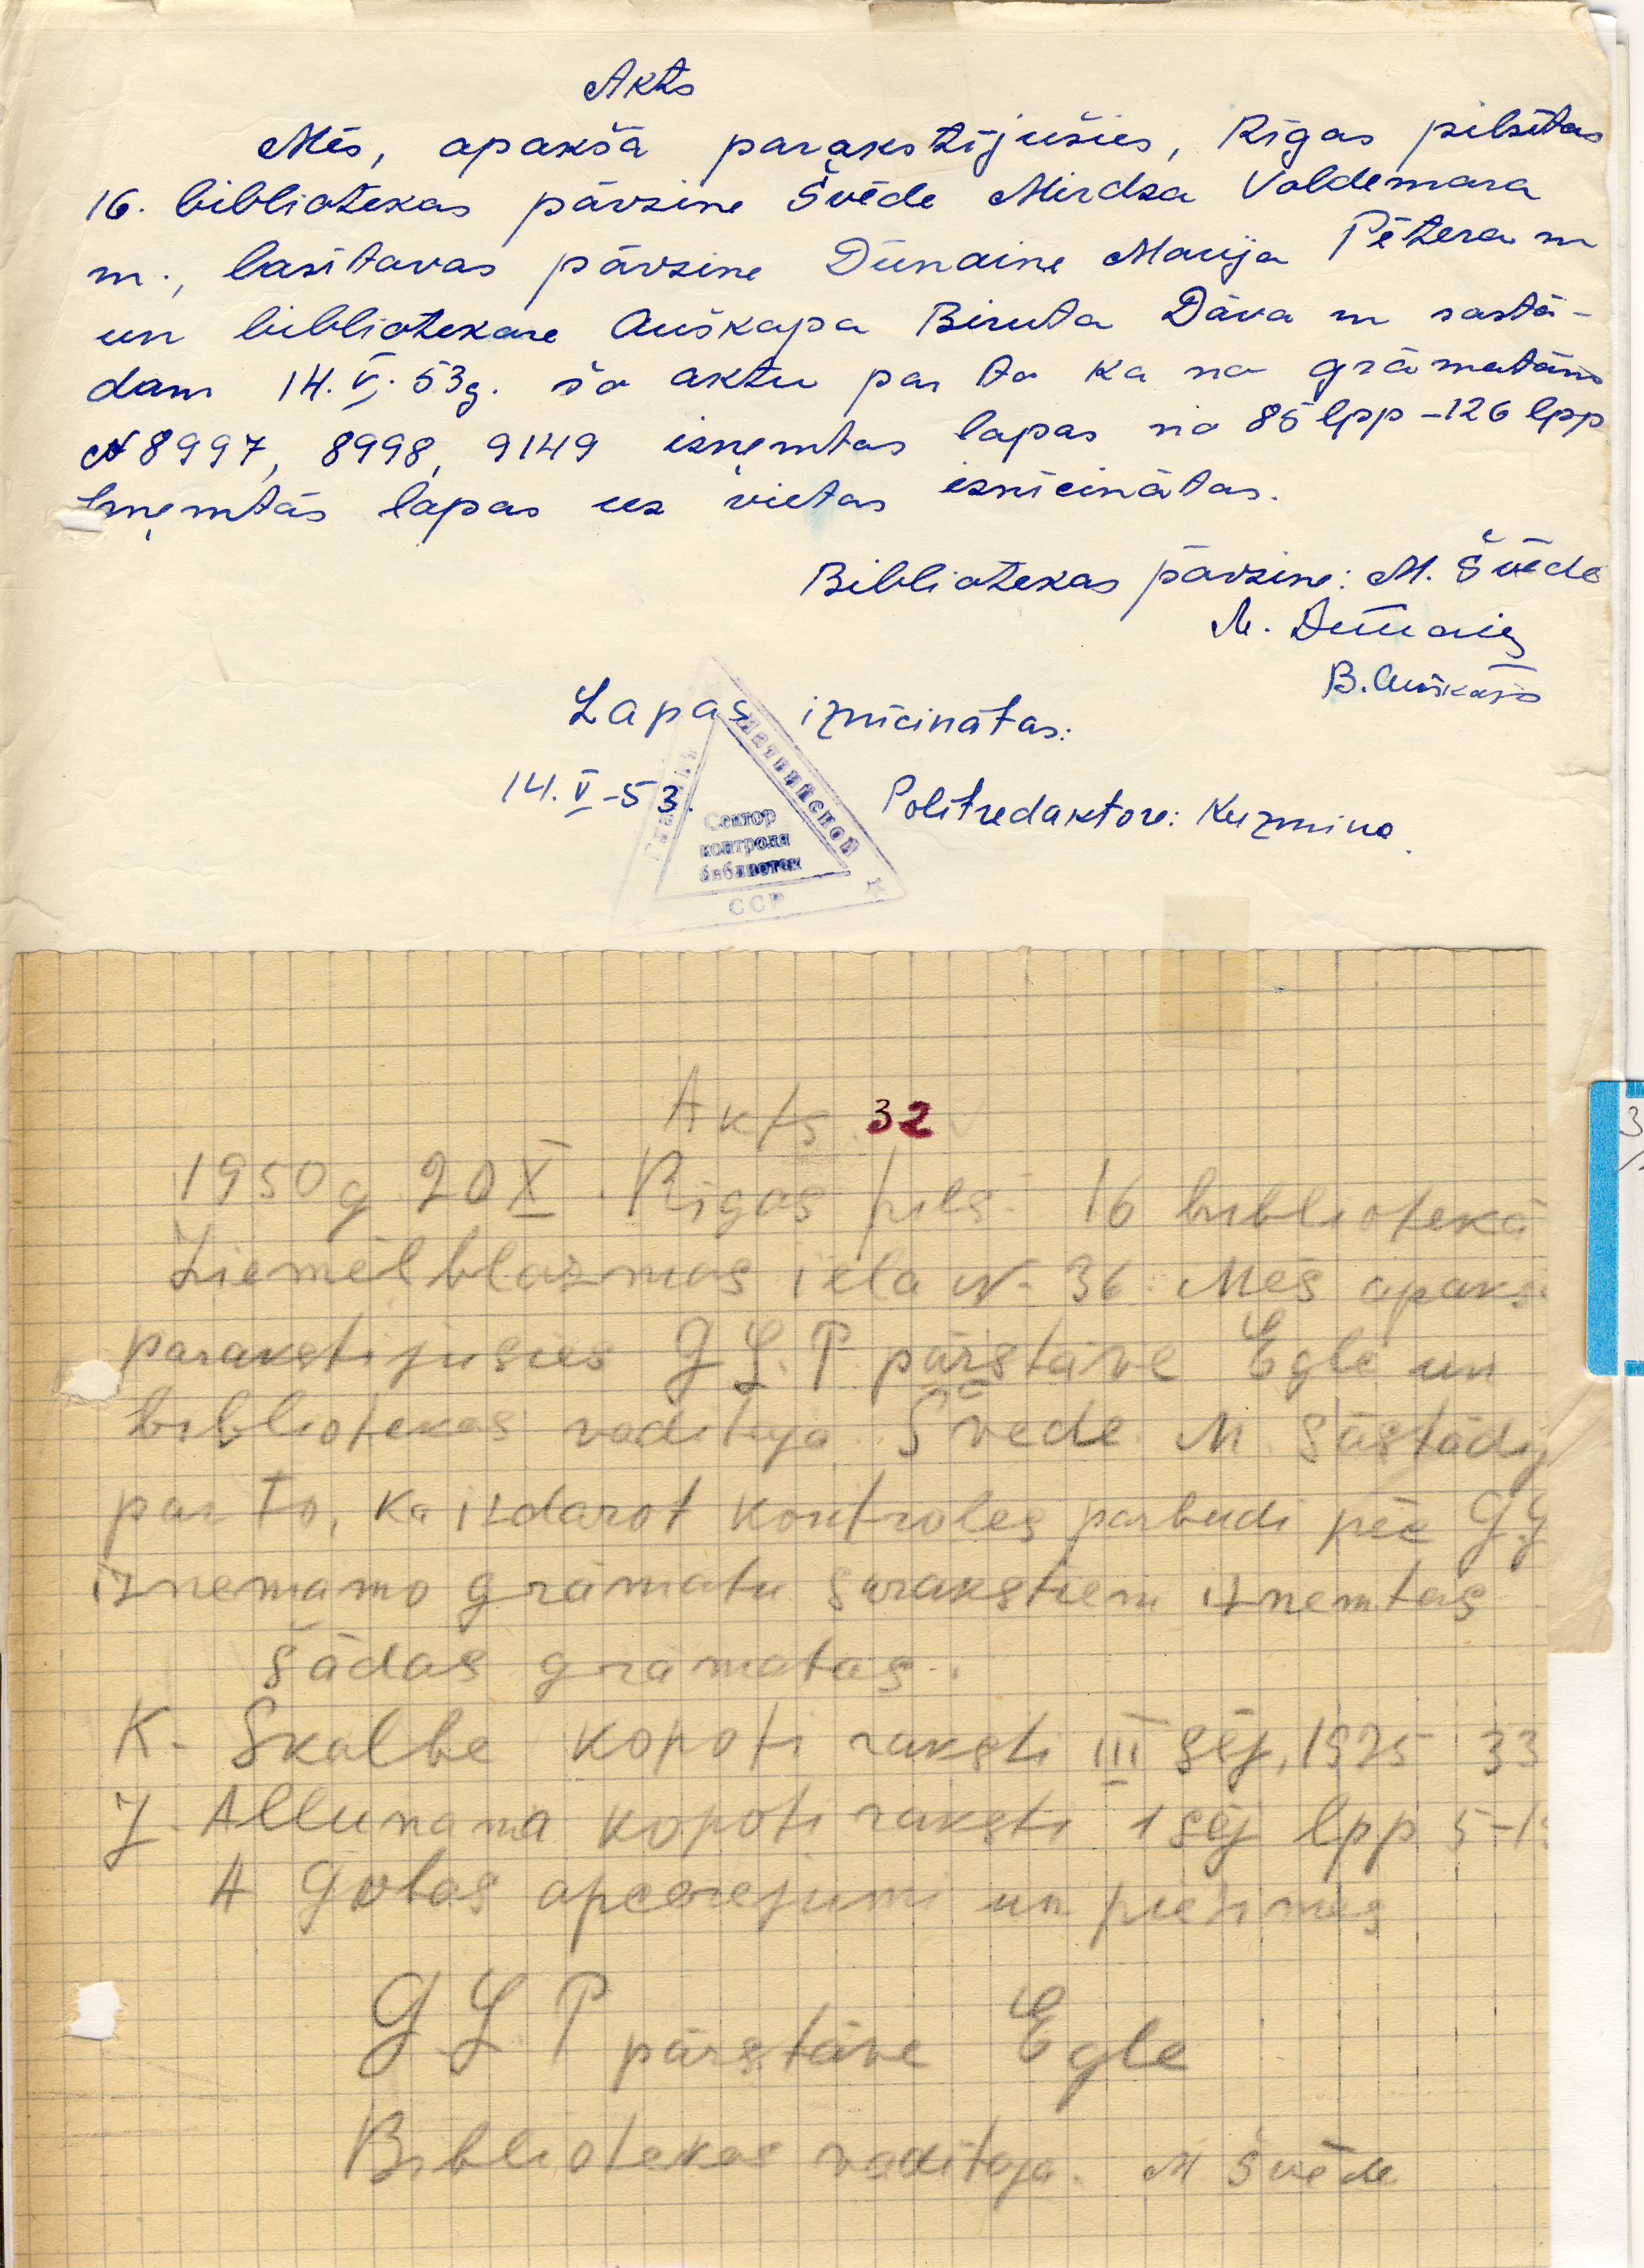 Akts
Mēs, apakšā parakstījušies, Rīgas pilsētas
16. bibliotekas pārzine Švēde Mirdza Voldemara
m., lasītavas pārzine Dūnaine Marija Pētera m
un bibliotekare Auškapa Biruta Dāva m sastā-
dam 14. V. 53g. šo aktu par to ka no grāmatām
N 8997, 8998, 9149 izņemtas lapas no 85 lpp - 126 lpp
Izņemtās lapas uz vietas iznīcinātas.
Bibliotekas pārzine: M. Švēde
M. Dūnaine
B. Auškapa
Lapas iznīcinātas:
14. V - 53.
Politredaktore: Kuzmina
Латвийской
Сектор
контроля
библиотек
ССР
Akts 32
1950 g 20 X. Rīgas pils. 16 bibliotekā
Ziemeļblāzmas iela N- 36. Mēs apakš
parakstijušies G L. P pārstāve Egle un
bibliotekas vaditaja Švede M. sastādij
par to, ka izdarot kontroles parbudi pēc G
iznemamo grāmatu sarakstiem iznemtas
šādas gramatas.
K. Skalbe kopoti raksti III sēj, 1925 33
J. Allunana kopoti raksti 1 sēj lpp 5-1
A Gobas apcerejumi un piezimes
G L P pārstāve Egle
Bibliotekas vaditaja. M Švēde
3